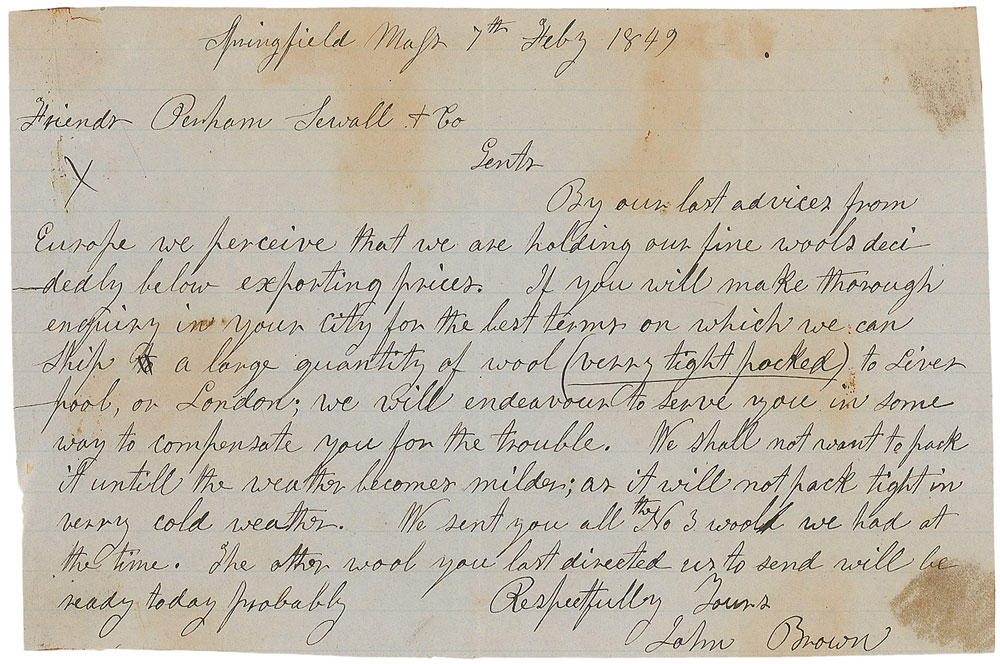 Springfield Mass 7th Feby 1849
Friends Perham Sewall & Co
X
Gents
By our last advices from
Europe we perceive that we are holding our fine wools deci-
-dedly below exporting prices. If you will make thorough
enquiry in your City for the best terms on which we can
Ship a large quantity of wool (verry tight packed) to Liver
-pool, or London; we will endeavour to serve you in some
way to compensate you for the trouble. We shall not want to pack
it untill the weather becomes milder; as it will not pack tight in
verry cold weather. We sent you all the No 3 wool we had at
the time. The other wool you last directed us to send will be
ready today probably Respectfully Yours
John Brown